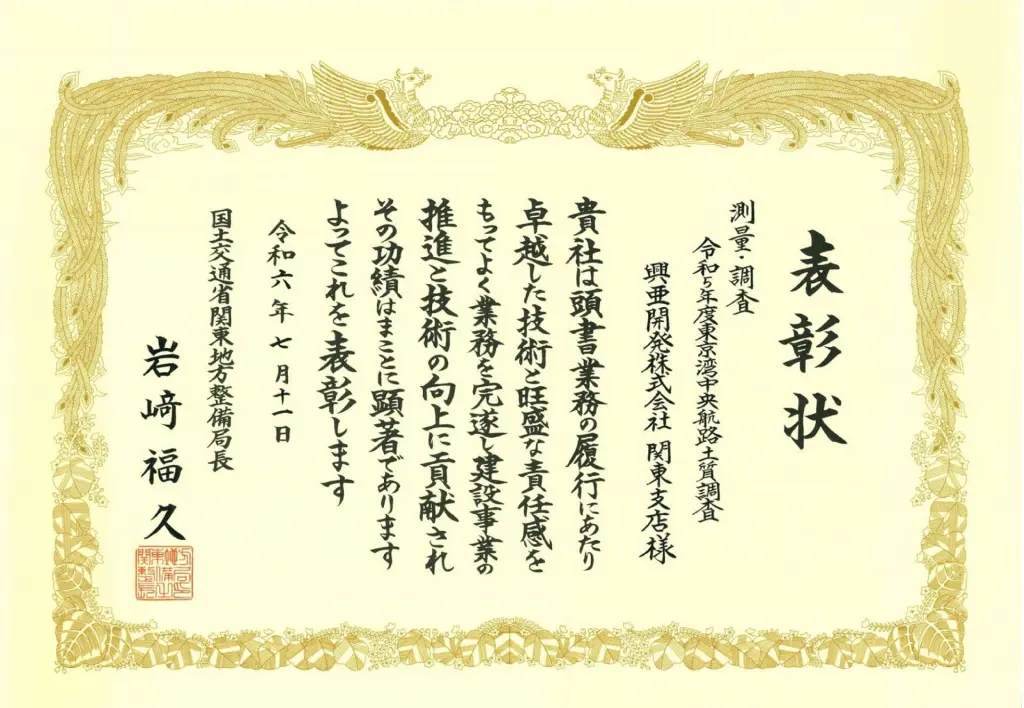 表彰状
測量・調査
令和5年度東京湾中央航路土質調査
興亜開発株式会社 関東支店様
貴社は頭書業務の履行にあたり
卓越した技術と旺盛な責任感を
もってよく業務を完遂し建設事業の
推進と技術の向上に貢献され
その功績はまことに顕著であります
よってこれを表彰します
令和六年七月十一日
国土交通省関東地方整備局長
岩﨑福久